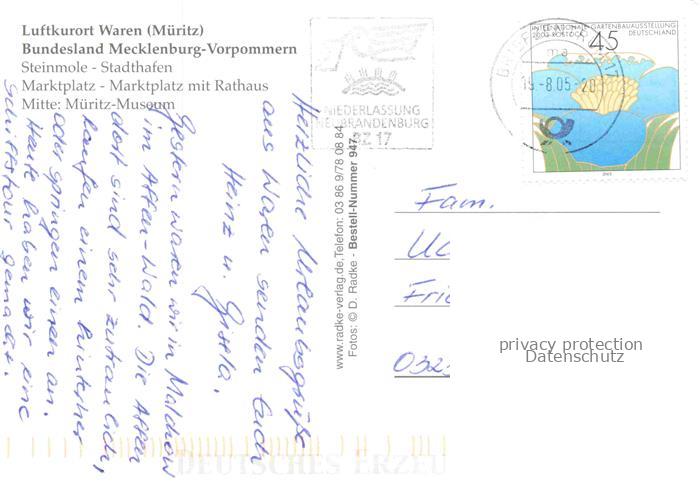 Luftkurort Waren (Müritz)
Bundesland Mecklenburg-Vorpommern
Steinmole - Stadthafen
Marktplatz - Marktplatz mit Rathaus
Mitte: Müritz-Museum
Herzliche Urlaubsgrüße
aus Waren senden Euch
Heinz u. Gisela.
Gestern waren wir in Malchow
im Affen-Wald. Die Affen
dort sind sehr zutraulich,
laufen einem hinterher
oder springen einen an.
Heute haben wir eine
Schiffstour gemacht.
www.radke-verlag.de, Telefon: 03 86 9/78 08 84
Fotos: © D. Radke - Bestell-Nummer
NIEDERLASSUNG
NEUBRANDENBURG
BZ 17
15.-8.05-20
INTERNATIONALE GARTENBAUAUSSTELLUNG
2003 ROSTOCK DEUTSCHLAND
45
2003
Fam.
Fri
032
privacy protection
Datenschutz
DEUTSCHES ERZEU